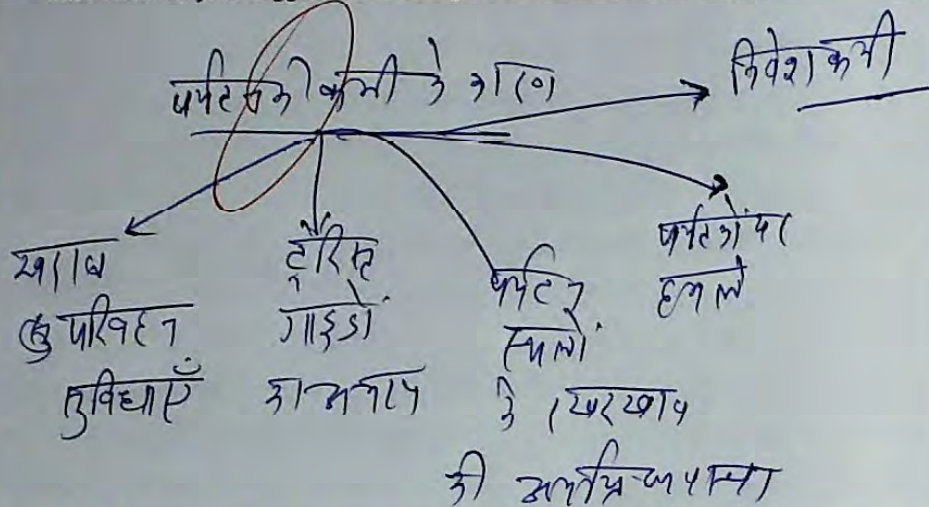 पर्यटन की कमी के कारण
निवेश कमी
खराब
परिवहन
सुविधाएँ
टूरिस्ट
गाइडों
का अभाव
पर्यटन
स्थलों
के रखरखाव
की
पर्यटकों पर
हमले